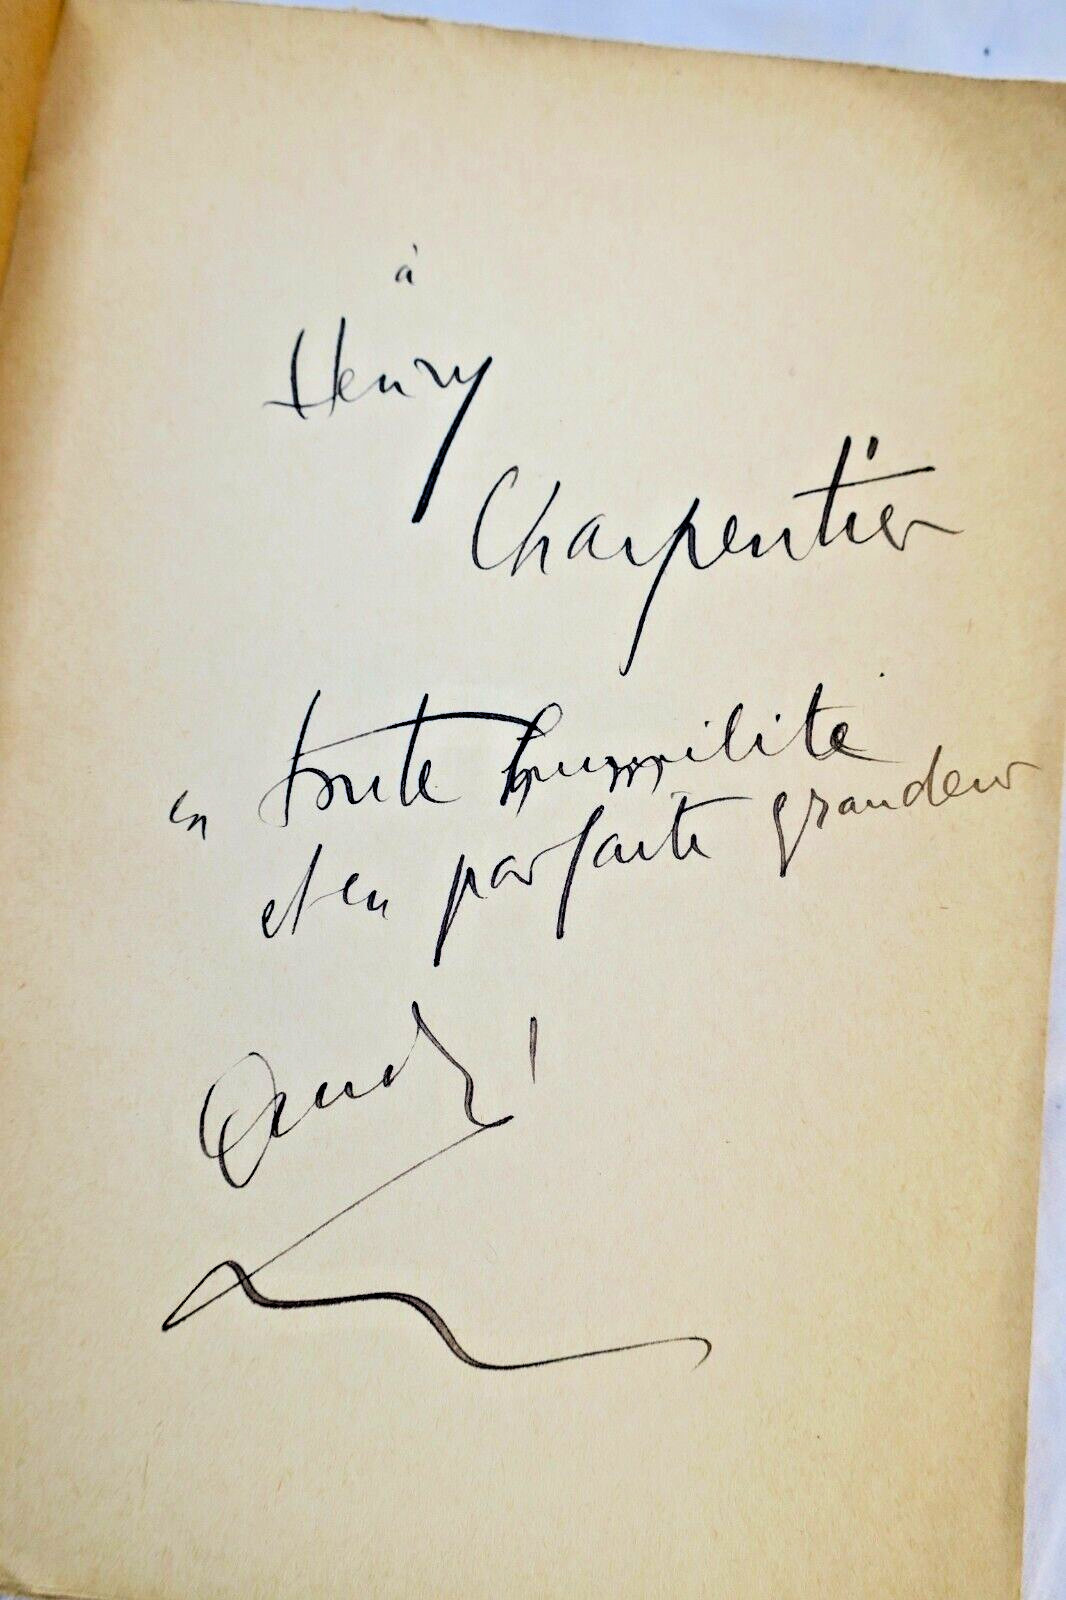 à
Henry
Charpentier
en toute humilité
et en parfaite grandeur